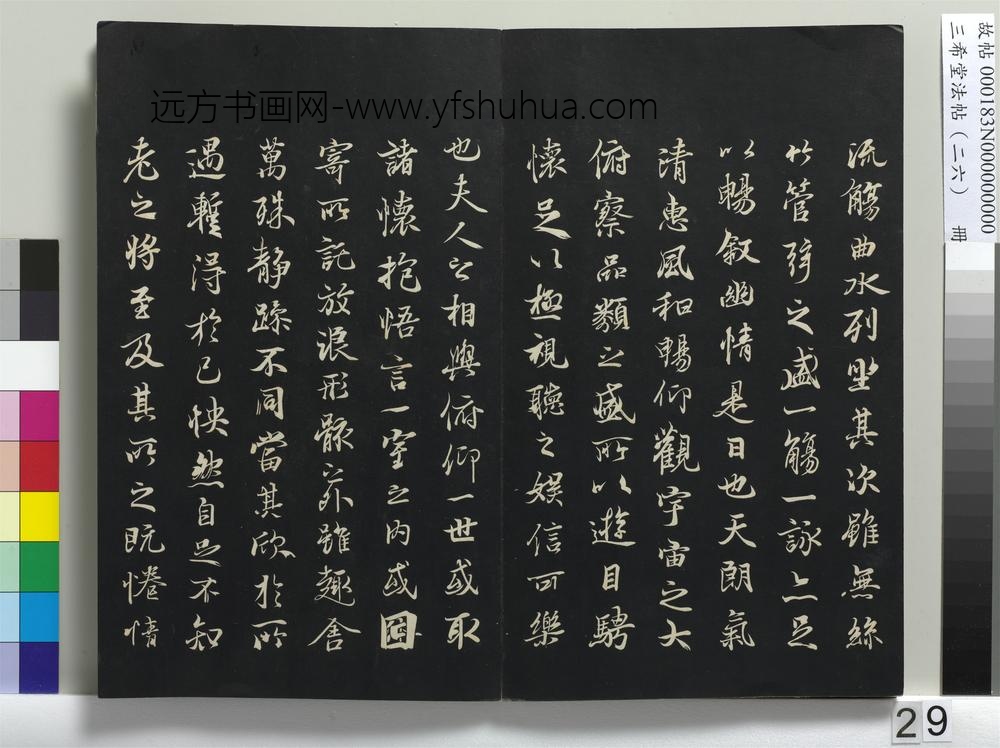 远方书画网-www.yfshuhua.com
故帖 000183N000000000
三希堂法帖（二六） 冊
流觴曲水列坐其次雖無絲
竹管弦之盛一觴一詠亦足
以暢叙幽情是日也天朗氣
清惠風和暢仰觀宇宙之大
俯察品類之盛所以遊目騁
懷足以極視聽之娛信可樂
也夫人之相與俯仰一世或取
諸懷抱悟言一室之内或因
寄所託放浪形骸之外雖趣舍
萬殊静躁不同當其欣於所
遇蹔得於己怏然自足不知
老之将至及其所之既惓情
29